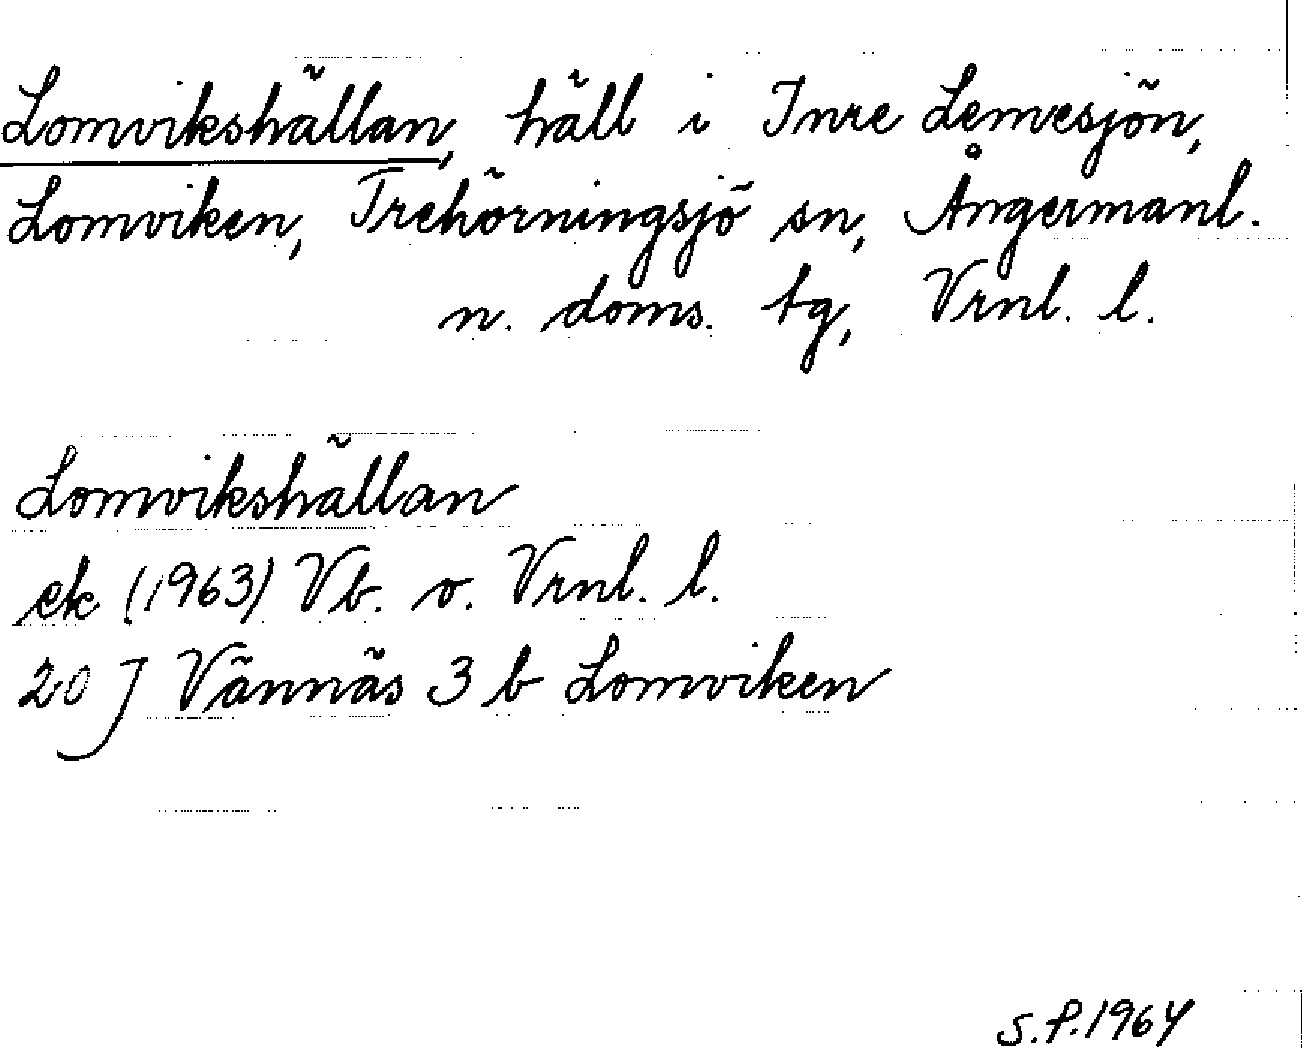 Lomvikshällan, häll i Inre Lemesjön,
Lomviken, Trehörningsjö sn, Ångermanl.
n. doms. tg, Vrnl. l.
Lomvikshällan
ek (1963) Vb. o. Vrnl. l.
20 J Vännäs 3 b Lomviken
S.P.1964